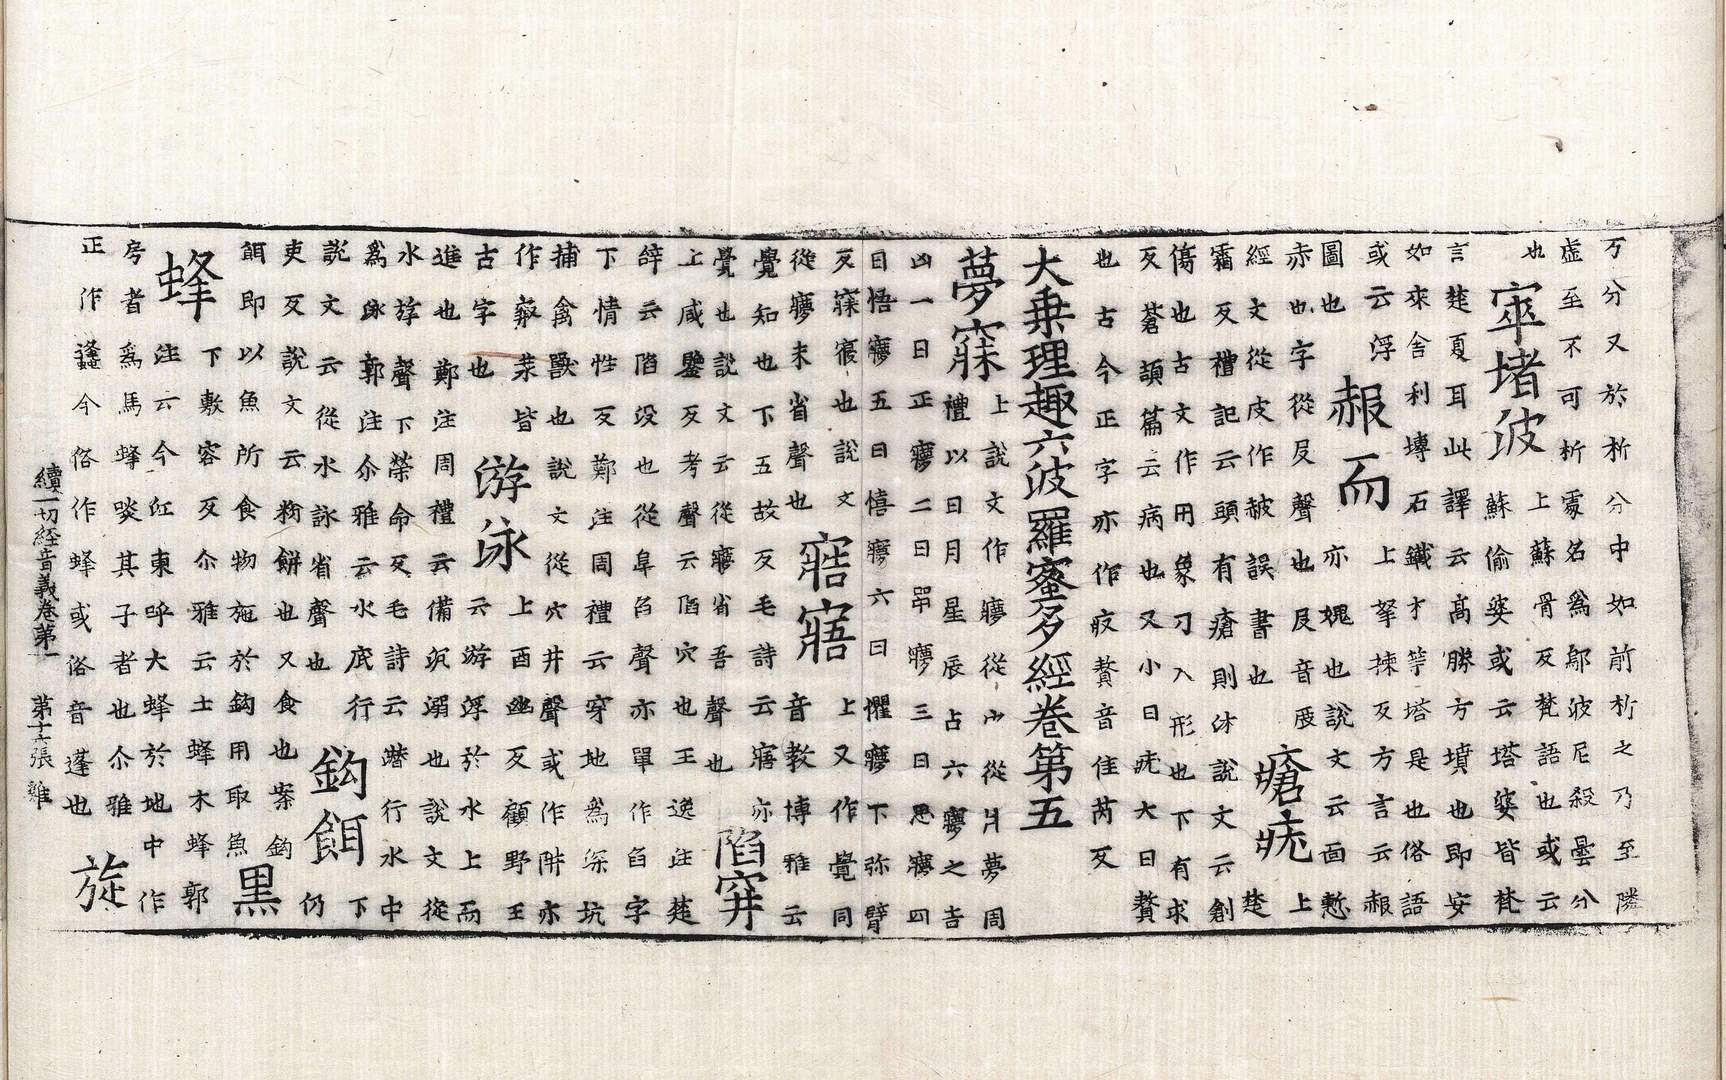 万分又於析分中如前析之乃至隣
虚至不可析䨱名為鄔波尼殺曇分
也 窣堵波 上蘇骨反梵語也或云
蘇偷婆或云塔婆皆梵
言楚夏耳此譯云高勝方墳也即安
如來舍利塼石鐵才䓁塔是也俗語
或云浮
圖也 赧而 上拏揀反方言云赧
亦愧也說文云面慙
赤也字從𠬝聲也𠬝音𠬝 上
經文從皮作赧誤書也 瘡疣 楚
霜反禮記云頭有瘡則沐說文云創
傷也古文作刅象刀入形也下有求
反蒼頡篇云病也又小曰疣大曰贅
也古今正字亦作肬贅音隹芮反
大乗理趣六波羅蜜多經卷第五
夢寐 上說文作㝱從宀從爿夢周
禮以日月星辰占六㝱之吉
凶一曰正㝱二曰咢㝱三曰思㝱四
曰悟㝱五曰憘㝱六曰懼㝱下弥臂
反寐寢也說文
從㝱未省聲也 寤寤 上又作覺同
音教博雅云
覺知也下五故反毛詩云寤亦
覺也說文云從㝱省吾聲也 陷穽
上咸鑒反考聲云陷穴也王逸注楚
辞云陷没也從阜臽聲亦單作臽字
下情性反鄭注周禮云穿地為深坑
捕禽獸也說文從穴井聲或作阱亦
作㓝葬皆
古字也 游泳 上酉幽反顧野王
云游浮於水上而
進也鄭注周禮云備沉溺也說文從
水斿聲下榮命反毛詩云潛行水中
為泳郭注尒雅云水底行
說文云從水詠省聲也 鈎餌 下
仍
吏反說文云粉餅也又食也案鈎
餌即以魚所食物施於鈎用取魚 黑
蜂 下敷容反尒雅云土蜂木蜂郭
注云今江東呼大蜂於地中作
房者為馬蜂啖其子者也尒雅
正作䗬今俗作蜂或俗音蓬也 旋
續一切経音義卷第一 第十六張 雞